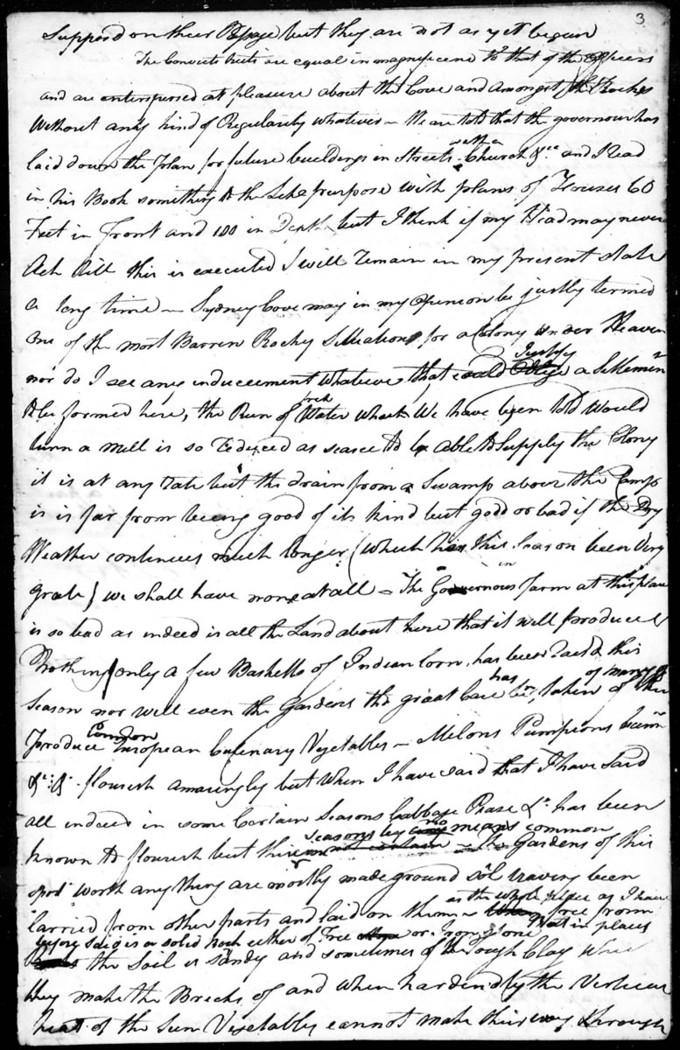 3
Supposd on their Passage but they are not as yet begun
The Convicts huts are equal in magnificene to that of the officers
and are enterspersed at pleasure about the Cove and amongst the Rocks
Without anky kind of Regularity whatever — We are told that the governour has
laid down the Plan for future buildings in Streets with a Church &cc and I Read
in his Book something to the Like purpose with plans of Houses 60
Feet in front and 100 in Depth but I think if my Head may never
Ach till this is executed I will remain in my present state
a long time — Sydney Cove may in my opineon be justly termed
one of the most Barren Rocky Situations for a Colony under Heaven
nor do I see any induceement whatever that could Justify a Settlemen
to be formed here, the Run of Fresh Water which We have been told Would
turn a mill is so Reduced as scarce to be able to Supply the Colony
it is at any rate but the drain from a Swamp above the Camp
is is far from being good of its kind but good or bad if the Dry
Weather continues much longer (which has this Season been Very
great) we shall have none at all — The Governours farm at this place
is so bad as indeed is all the Land about here that it will produce
Nothing only a few Basketts of Indian Corn has been Raisd this
Season nor will even the Gardens tho great Care has been taken of many of them
produce Common European Culenary Vegetables — Melons Pumpions
&c: &c flourish amazingly but when I have said that I have said
all indeed in some Certain Seasons Cabbage Pease &c has been
known to flourish but their seasons by no means common Gardens of this
spot worth any thing are mostly made ground soil having been
carried from other parts and laid on them as the whole place as I have
before said is a solid Rock either of Free or Iron Stone That in places free from
the Soil is sandy and sometimes of the Tough Clay
they make the Bricks of and when hardend by the Vertical
heat of the Sun Vegetables cannot make their way through